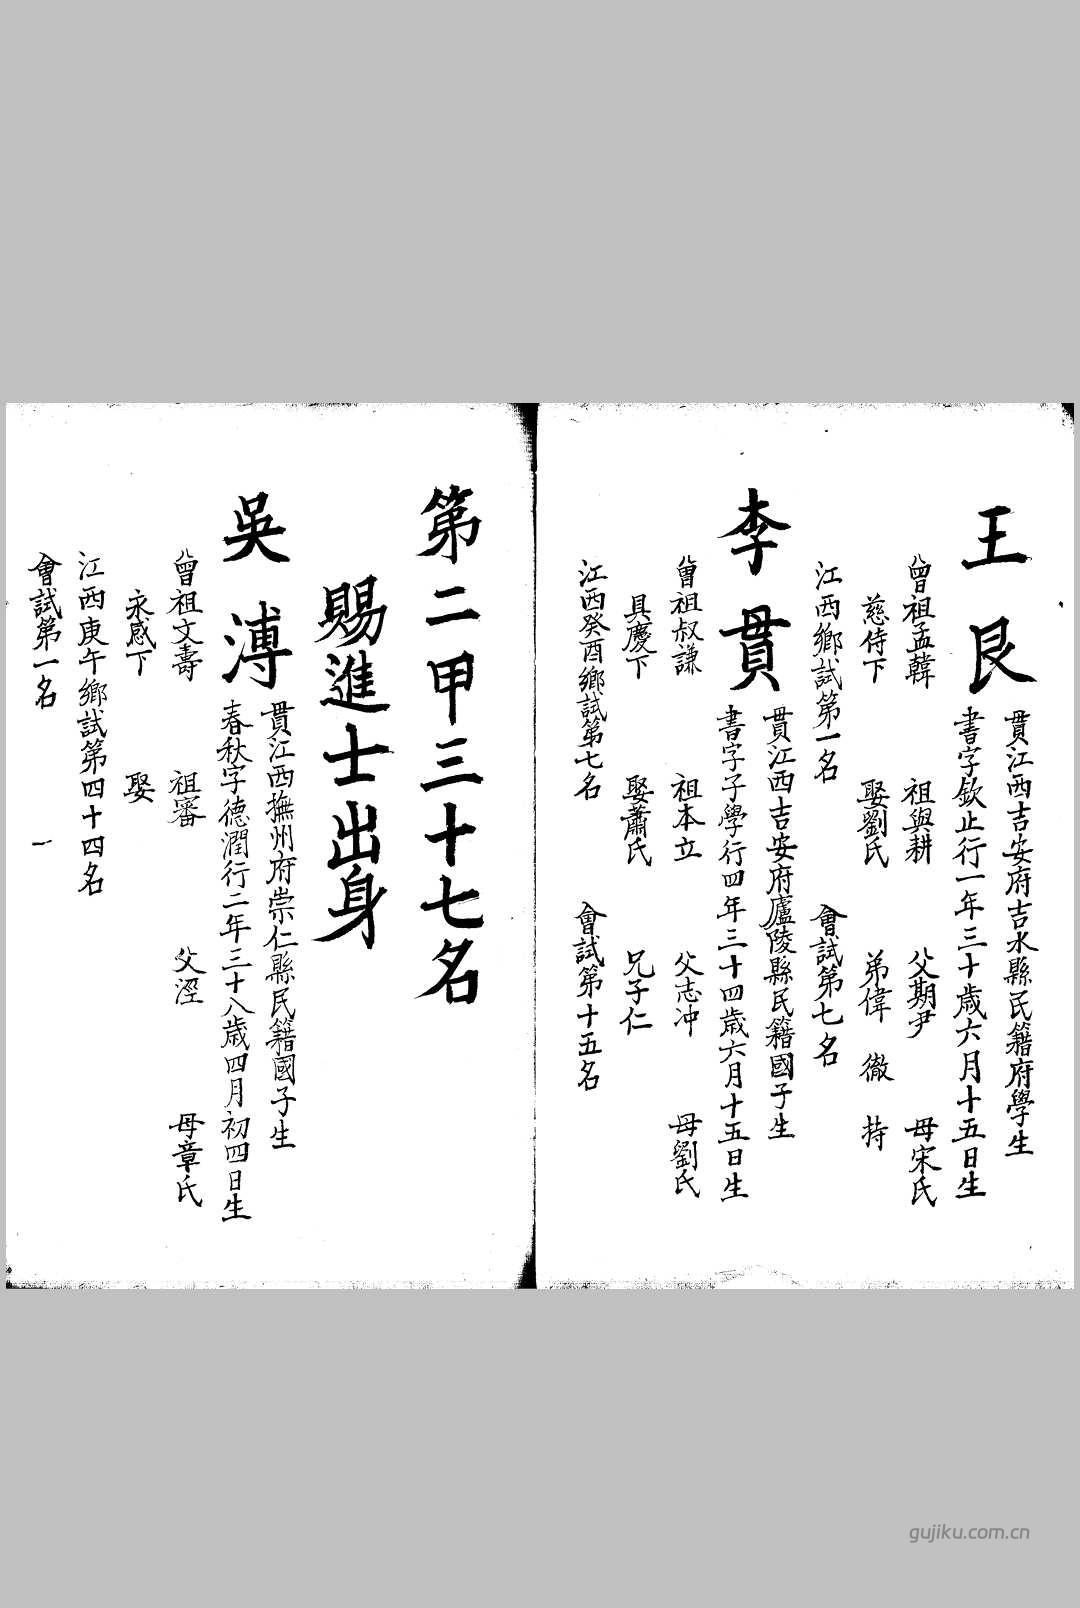 王艮
貫江西吉安府吉水縣民籍府學生
書字欽止行一年三十歲六月十五日生
曾祖孟韓 祖與耕 父期尹 母宋氏
慈侍下 娶劉氏 弟偉 徹 持
江西鄉試第一名 會試第七名
李貫
貫江西吉安府廬陵縣民籍國子生
書字子學行四年三十四歲六月十五日生
曾祖叔謙 祖本立 父志冲 母劉氏
具慶下 娶蕭氏 兄子仁
江西癸酉鄉試第七名 會試第十五名
第二甲三十七名
賜進士出身
吳溥
貫江西撫州府崇仁縣民籍國子生
春秋字德潤行二年三十八歲四月初四日生
曾祖文壽 祖審 父涇 母章氏
永感下 娶
江西庚午鄉試第四十四名
會試第一名 一
gujiku.com.cn